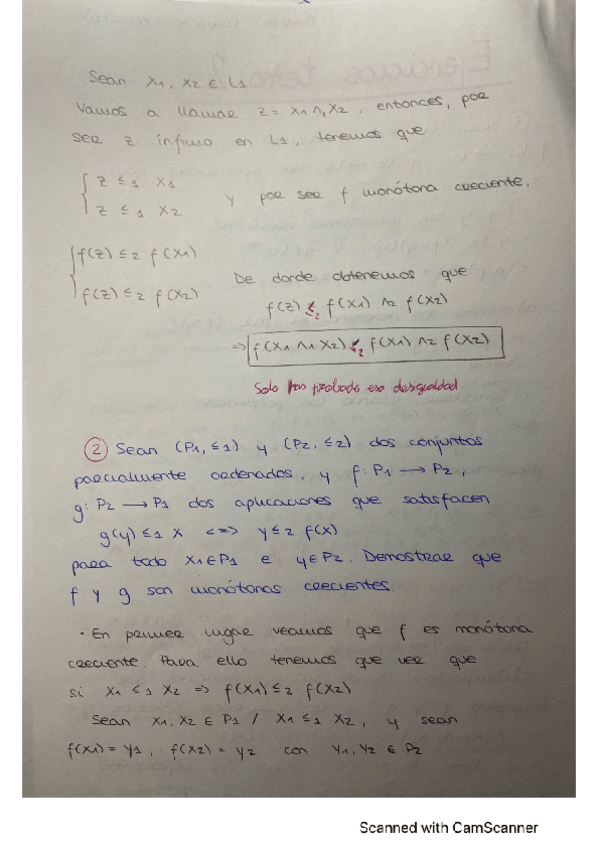 Sean x1, x2 ∈ L1
Vamos a llamar z = x1 ∧1 x2, entonces, por
ser z ínfimo en L1, tenemos que
{ z ≤1 x1
z ≤1 x2
y por ser f monótona creciente.
{ f(z) ≤2 f(x1)
f(z) ≤2 f(x2)
De donde obtenemos que
f(z) ≤2 f(x1) ∧2 f(x2)
⇒ f(x1 ∧1 x2) ≤2 f(x1) ∧2 f(x2)
Solo has probado esa desigualdad
② Sean (P1, ≤1) y (P2, ≤2) dos conjuntos
parcialmente ordenados, y f: P1 → P2,
g: P2 → P1 dos aplicaciones que satisfacen
g(y) ≤1 x <=> y ≤2 f(x)
para todo x1∈P1 e y∈P2. Demostrar que
f y g son monótonas crecientes.
· En primer lugar veamos que f es monótona
creciente. Para ello tenemos que ver que
si x1 ≤1 x2 => f(x1) ≤2 f(x2)
Sean x1, x2 ∈ P1 / x1 ≤1 x2, y sean
f(x1) = y1, f(x2) = y2 con y1, y2 ∈ P2
Scanned with CamScanner